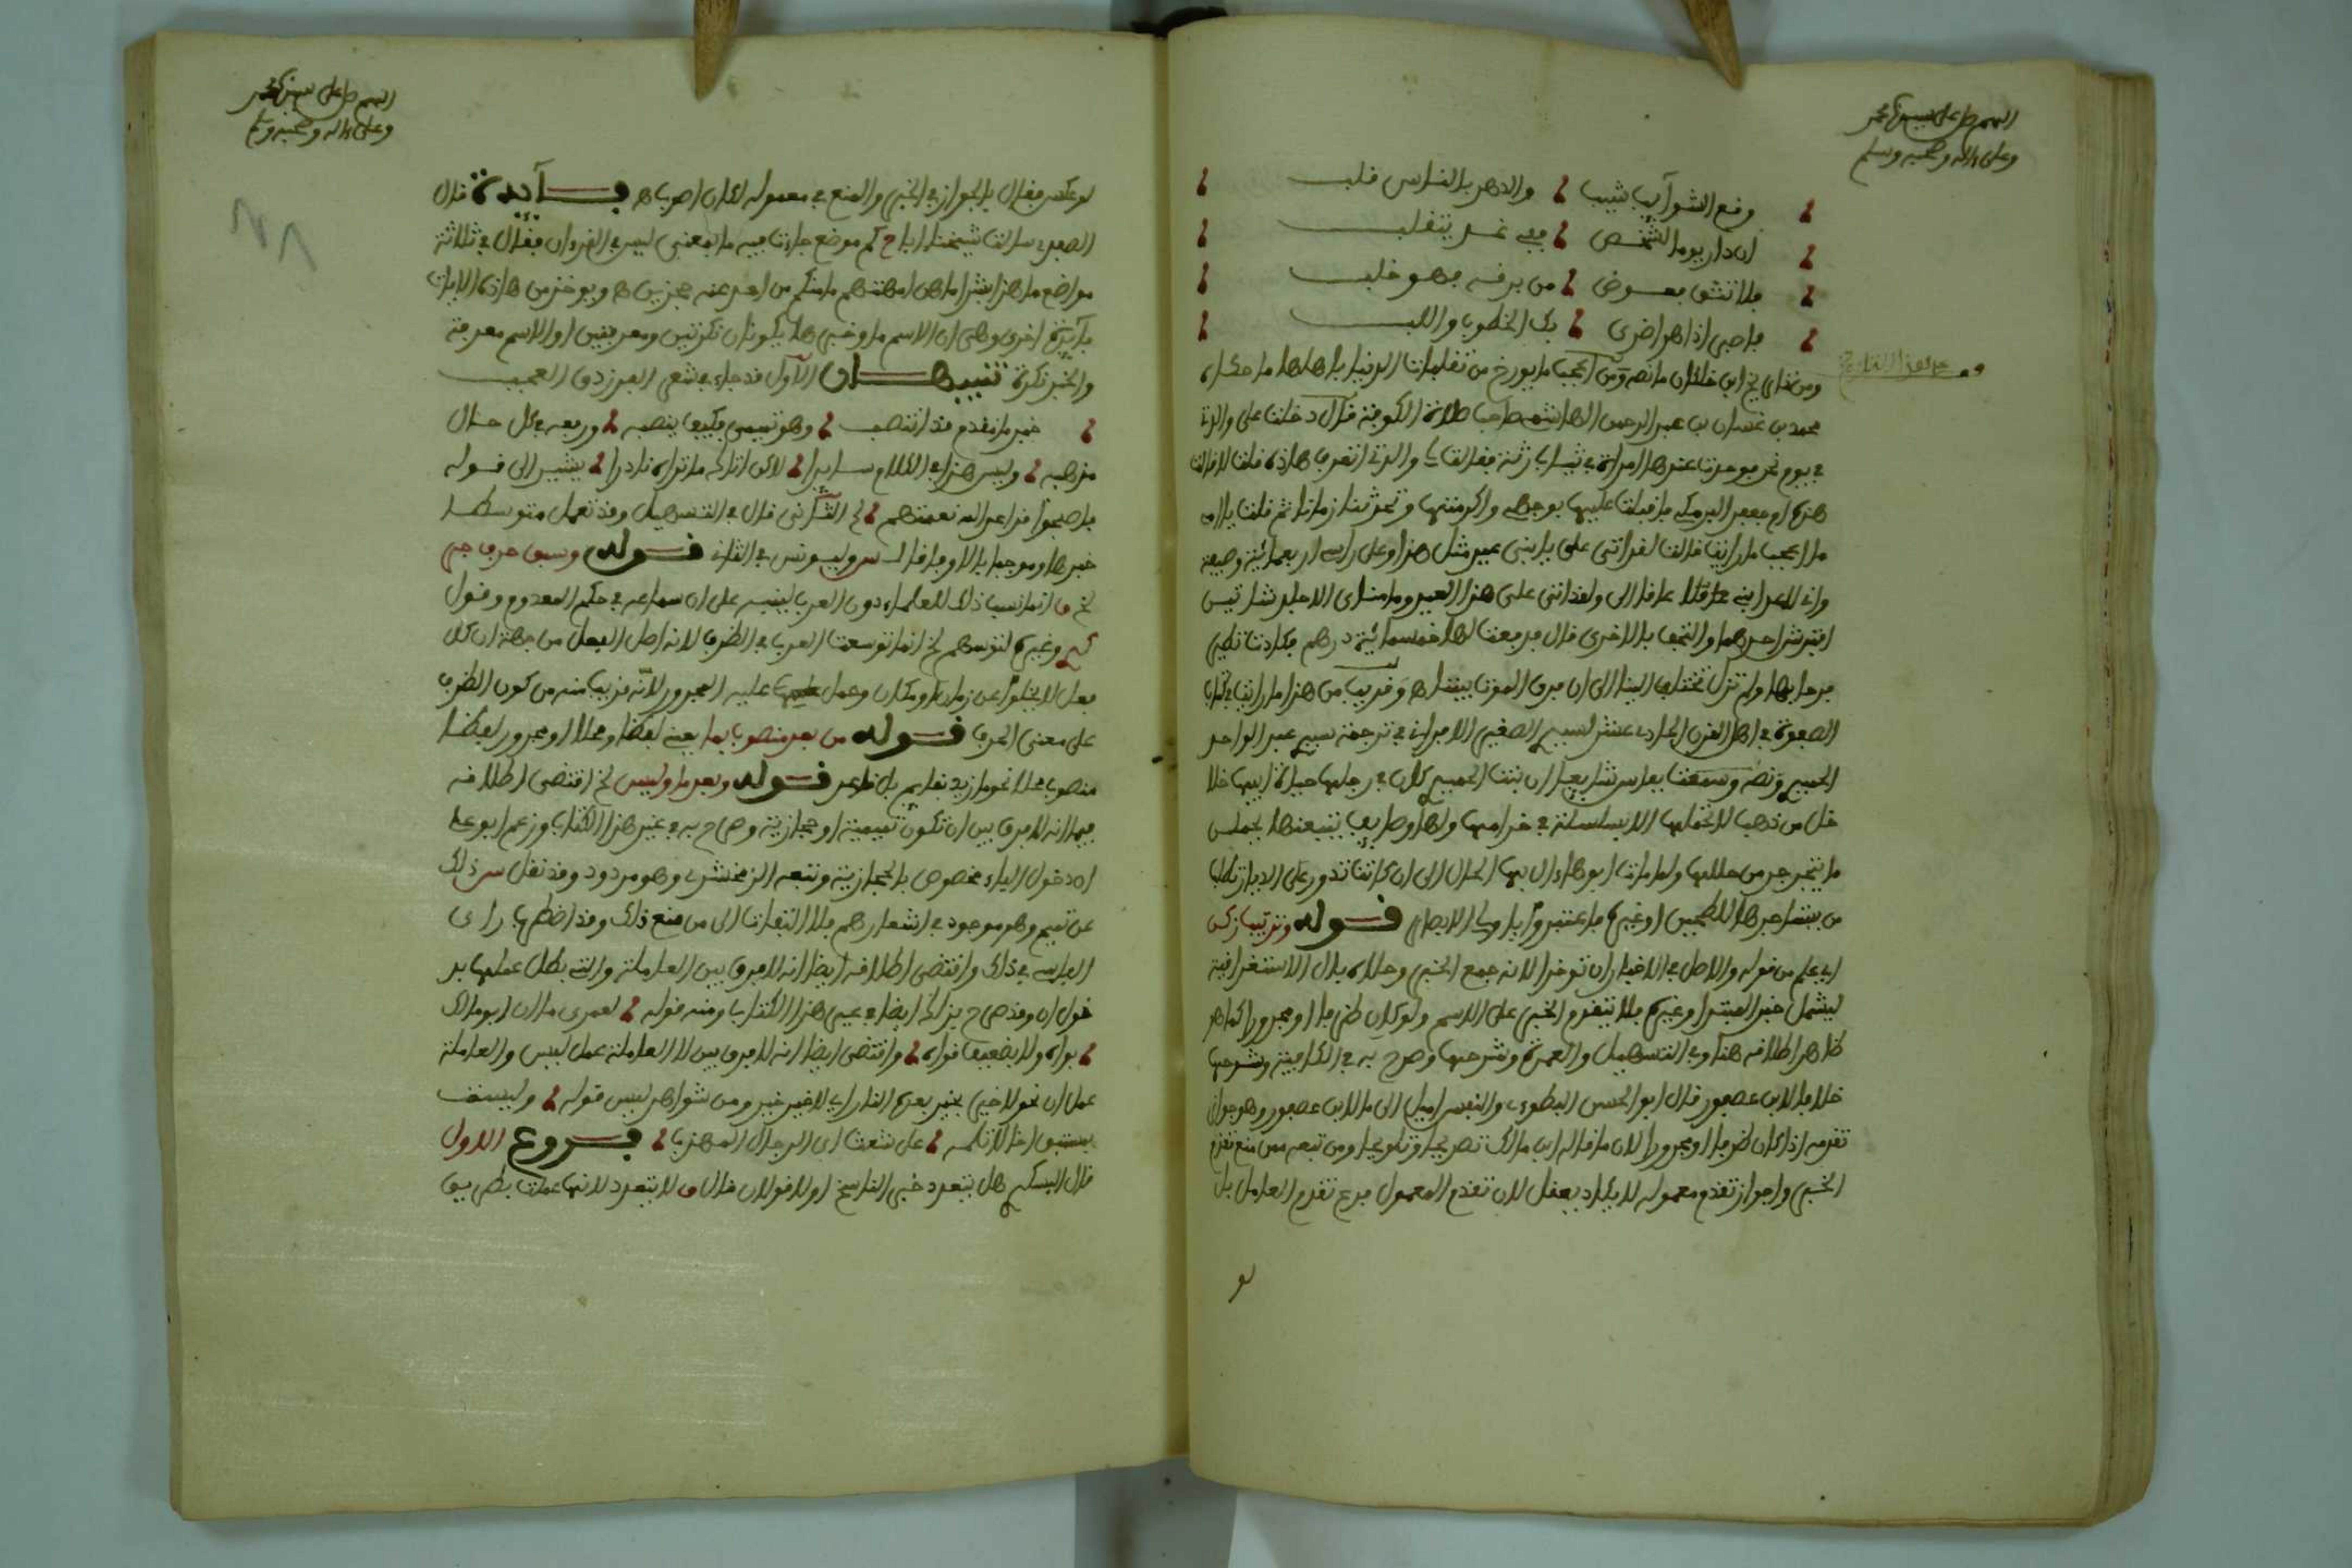 اللهم صل على سيدنا محمد
وعلى ءاله وصحبه وسلم
وقع الشوآيب شيب والدهر بالناس قلب
ان دان يوما لشخص ففي غد يتغلب
فلا تثق بوميض من برقه فهو خلب
واصبر اذا هو اضرى بك الخطوب والب
ومن تاريخ ابن خلكان ما نصه ومن اعجب ما يورخ من تقلبات الدنيا باهلها ما حكاه
محمد بن غسان بن عبد الرحمن الهاشمي صاحب صلاة الكوفة قال دخلت على والدتي
في يوم نحر فوجدت عندها امراة في ثياب رثة فقالت لي والدتي اتعرف هاذه قلت لا قالت
هذه ام جعفر البرمكي فاقبلت عليها بوجهي واكرمتها وتحدثنا زمانا ثم قلت يا امه
ما اعجب ما رايت فقالت لقد اتى علي يا بني عيد مثل هذا وعلى راسي اربعمائة وصيفة
واني لاعد ابني عاقا لي ولقد اتى علي هذا العيد وما مناي الا جلد شاتين
افترش احدهما والتحف بالاخرى قال فدفعت لها خمسمائة درهم فكادت تطير
فرحا بها ولم تزل تختلف الينا الى ان فرق الموت بيننا اه وقريب من هذا ما رايت في كتاب
الصفوة في اهل القرن الحادي عشر لسيدي الصغير الافراني في ترجمة سيدي عبد الواحد
الحميدي ونصه وسمعت بفاس شايعا ان بنت الحميدي كان في رجلها حياة ابيها خلا
خل من ذهب لا تحملها الا بسلسلة في خدامها ولها وصايف يتبعنها بحمل
ما ينجر من حللها ولما مات ابوها ءال بها الحال الى ان كانت تدور على الديار تطلب
من يستاجرها للطحين او غيره فاعتبروا يا اولي الابصار قوله وترتيبا زكن
اي علم من قوله والاصل في الاخبار ان توخرا لانه جمع الخبر وحلاه بال الاستغراقية
ليشمل خبر المبتدا وغيره فلا يتقدم الخبر على الاسم ولو كان ظرفا او مجرورا كما هو
ظاهر اطلاقه هنا وفي التسهيل والعمدة وشرحها وصرح به في الكافية وشرحها
خلافا لابن عصفور قال ابو الحسن البطوءي والنفس اميل الى ما لابن عصفور وهو جواز
تقدمه اذا كان ظرفا او مجرورا لان ما قاله ابن مالك تصريحا وتلويحا ومن تبعه من منع تقدم
الخبر واجواز تقدم معموله لا يكاد يعقل لان تقدم المعمول فرع تقدم العامل بل
لو
اللهم صل على سيدنا محمد
وعلى ءاله وصحبه وسلم
لو عكس فقال بالجواز في الخبر والمنع في معموله لكان اصوب اه فـــآيدة قال
الصفدي سالت شيخنا اباح كم موضع جاءت فيه ما بمعنى ليس في القرءان فقال في ثلاثة
مواضع ما هذا بشرا ما هن امهتهم ما منكم من احد عنه حجزين اه ويوخذ من هاذه الايات
فآيدة اخرى وهي ان الاسم ما وخبرها يكونان نكرتين ومعرفتين او الاسم معرفة
والخبر نكرة تنبيهـــان الاول قد جاء في شعر الفرزدق العجيب
خبر ما مقدم قد انتصب وهو تميمي فكيف ينصبه ورفعه في كل حال
مذهبه وليس هذا في الكلام سايرا لاكن اتاك ما تراه نادرا يشير الى قوله
فاصبحوا قد اعاد الله نعمتهم لخ الثآني قال في التسهيل وقد تعمل متوسطا
خبرها وموجبا بالا وفاقا لـ س وليونس في الثاني قـــوله وسبق حرف جر
لخ ق انما نسب ذلك للعلماء دون العرب لينبه على ان سماعه في حكم المعدوم وقول
وغيره لتوسهم لخ انما توسعت العرب في الظرف لانه اصل الفعل من جهة ان كل
فعل لا يخلوا عن زمان او مكان وحمل عليه المجرور لانه قريب منه من كون الظرف
على معنى الحرف قـــوله من بعد منصوب بما يعني لفظا ومحلا او مجرور لفظا
منصوب محلا نحو ما زيد بقايم بل قاعد قـــوله وبعد ما وليس لخ اقتضى اطلاقه
فيما انه لا فرق بين ان تكون تميمية او حجازية وصرح به في غير هذا الكتاب وزعم ابو علي
ان دخول الباء مخصوص بالحجازية وتبعه الزمخشري وهو مردود وقد نقل س ذلك
عن تميم وهو موجود في اشعارهم فلا التفات الى من منع ذلك وقد اضطرب راي
الفارسي في ذلك واقتضى اطلاقه ايضا انه لا فرق بين العاملة والتي بطل عملها بد
خول ان وقد صرح بذلك ايضا في غير هذا الكتاب ومنه قوله لعمرى ما ان ابو مالك
بواه ولا بضعيف قواه واقتضى ايضا انه لا فرق بين لا العاملة عمل ليس والعاملة
عمل ان نحو لا خير بخير بعده النار اي لا خير خير ومن شواهد ليس قوله ولست
بمستبق اخا لا تلمه على شعث اي الرجال المهذب فـــروع الاول
قال البسكري هل يتعدد خبر الناسخ او لا قولان قال ق لا يتعدد لانها عملت بطريق